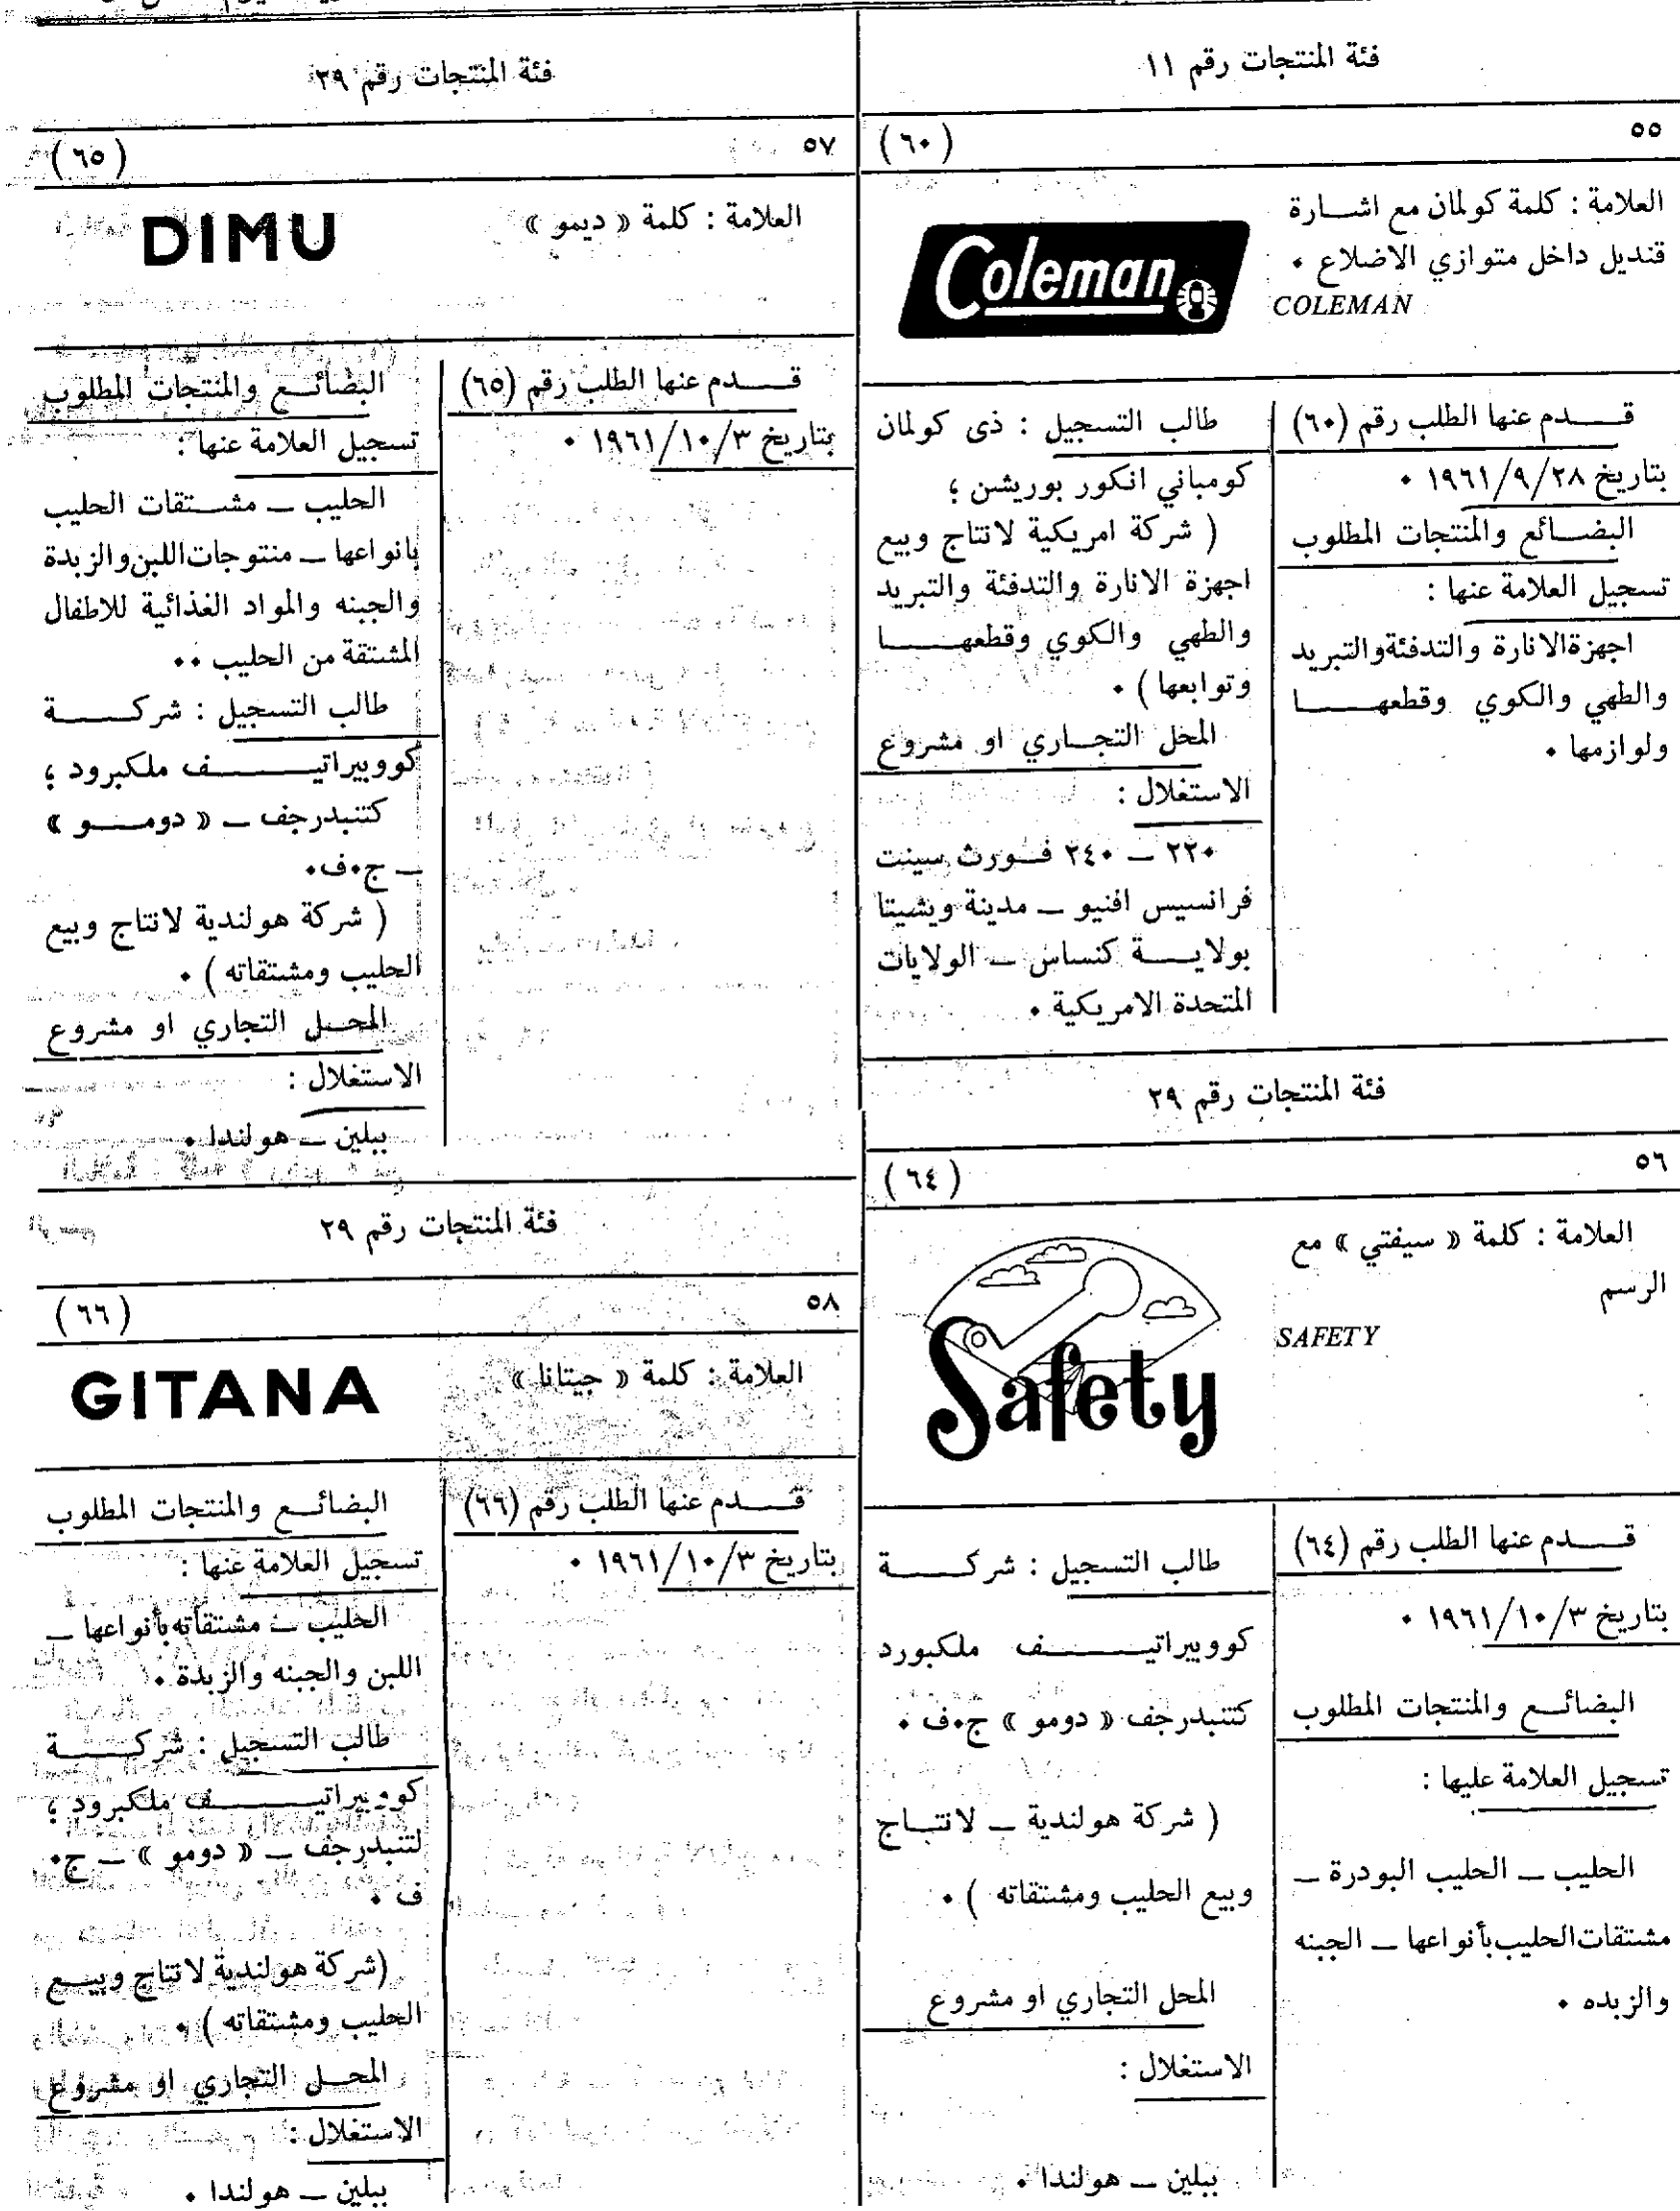 فئة المنتجات رقم ١١
٥٥ (٦٠)
العلامة : كلمة كولمان مع اشـارة
قنديل داخل متوازي الاضلاع ٠
COLEMAN
Coleman
قـــدم عنها الطلب رقم (٦٠)
بتاريخ ٢٨/٩/١٩٦١ ٠
البضـائع والمنتجات المطلوب
تسجيل العلامة عنها :
اجهزة الانارة والتدفئة والتبريد
والطهي والكوي وقطعهـــا
ولوازمها ٠
طالب التسجيل : ذى كولمان
كومباني انكور بوريشن ؛
( شركة امريكية لانتاج وبيع
اجهزة الانارة والتدفئة والتبريد
والطهي والكوي وقطعهـــا
وتوابعها ) ٠
المحل التجـاري او مشروع
الاستغلال :
٢٢٠ ــ ٢٤٠ فـورث سينت
فرانسيس افنيو ــ مدينة ويشيتا
بولايـــة كنساس ــ الولايات
المتحدة الامريكية ٠
فئة المنتجات رقم ٢٩
٥٦ (٦٤)
العلامة : كلمة « سيفتي » مع
الرسم
SAFETY
Safety
قـــدم عنها الطلب رقم (٦٤)
بتاريخ ٣/١٠/١٩٦١ ٠
البضائـع والمنتجات المطلوب
تسجيل العلامة عليها :
الحليب ــ الحليب البودرة ــ
مشتقات الحليب بأنواعها ــ الجبنه
والزبده ٠
طالب التسجيل : شركـــة
كووبيراتيـــــف ملكبورد
كتنبدرجف « دومو » ج٠ف ٠
( شركة هولندية ــ لانتـاج
وبيع الحليب ومشتقاته ) ٠
المحل التجاري او مشروع
الاستغلال :
ببلين ــ هولندا ٠
فئة المنتجات رقم ٢٩
٥٧ (٦٥)
العلامة : كلمة « ديمو »
DIMU
قـــدم عنها الطلب رقم (٦٥)
بتاريخ ٣/١٠/١٩٦١ ٠
البضائـع والمنتجات المطلوب
تسجيل العلامة عنها :
الحليب ــ مشـتقات الحليب
بانواعها ــ منتوجات اللبن والزبدة
والجبنه والمواد الغذائية للاطفال
المشتقة من الحليب ٠٠
طالب التسجيل : شركـــة
كووبيراتيـــــف ملكبرود ؛
كتنبدرجف ــ « دومـــو »
ــ ج٠ف٠
( شركة هولندية لانتاج وبيع
الحليب ومشتقاته ) ٠
المحـل التجاري او مشروع
الاستغلال :
ببلين ــ هولندا ٠
فئة المنتجات رقم ٢٩
٥٨ (٦٦)
العلامة : كلمة « جيتانا »
GITANA
قـــدم عنها الطلب رقم (٦٦)
بتاريخ ٣/١٠/١٩٦١ ٠
البضائـع والمنتجات المطلوب
تسجيل العلامة عنها :
الحليب ــ مشتقاته بأنواعها ــ
اللبن والجبنه والزبدة ٠
طالب التسجيل : شركـــة
كووبيراتيـــــف ملكبرود ؛
لتنبدرجف ــ « دومو » ــ ج٠
ف ٠
(شركة هولندية لانتاج وبيـع
الحليب ومشتقاته ) ٠
المحـل التجاري او مشروع
الاستغلال :
ببلين ــ هولندا ٠